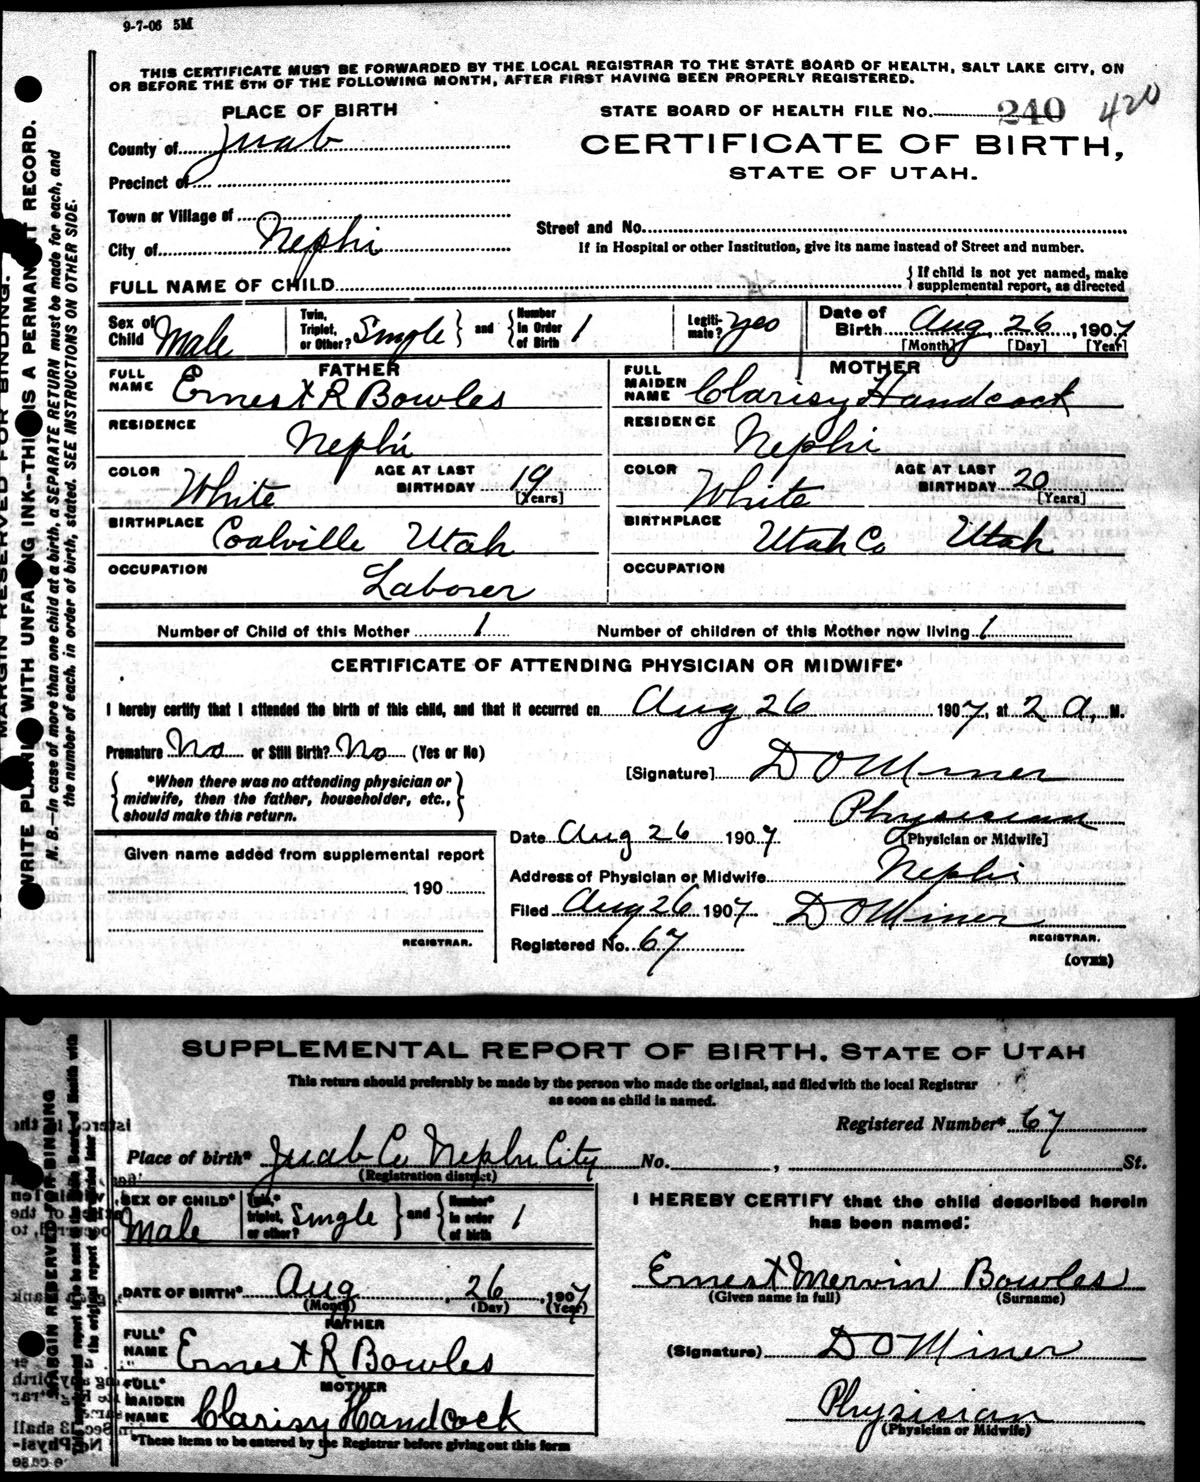 9-7-06 5M
THIS CERTIFICATE MUST BE FORWARDED BY THE LOCAL REGISTRAR TO THE STATE BOARD OF HEALTH, SALT LAKE CITY, ON
OR BEFORE THE 5TH OF THE FOLLOWING MONTH, AFTER FIRST HAVING BEEN PROPERLY REGISTERED.
PLACE OF BIRTH
STATE BOARD OF HEALTH FILE No. 240 420
County of Juab
CERTIFICATE OF BIRTH,
STATE OF UTAH.
Precinct of
Town or Village of
Street and No.
City of Nephi
If in Hospital or other Institution, give its name instead of Street and number.
FULL NAME OF CHILD
{ If child is not yet named, make
supplemental report, as directed
Sex of Child Male
Twin, Triplet, or Other? Single } and { Number in Order of Birth 1
Legiti-mate? yes
Date of Birth Aug 26, 1907
[Month] [Day] [Year]
FATHER
FULL NAME Ernest R Bowles
MOTHER
FULL MAIDEN NAME Clarisy Handcock
RESIDENCE Nephi
RESIDENCE Nephi
COLOR White AGE AT LAST BIRTHDAY 19 [Years]
COLOR White AGE AT LAST BIRTHDAY 20 [Years]
BIRTHPLACE Coalville Utah
BIRTHPLACE Utah Co Utah
OCCUPATION Laborer
OCCUPATION
Number of Child of this Mother 1 Number of children of this Mother now living 1
CERTIFICATE OF ATTENDING PHYSICIAN OR MIDWIFE*
I hereby certify that I attended the birth of this child, and that it occurred on Aug 26 1907, at 2 A, M.
Premature No or Still Birth? No (Yes or No)
{ *When there was no attending physician or
midwife, then the father, householder, etc.,
should make this return. }
[Signature] D O Miner
Physician
[Physician or Midwife]
Date Aug 26 1907
Address of Physician or Midwife Nephi
Filed Aug 26 1907 D O Miner
REGISTRAR.
Registered No. 67
(OVER)
Given name added from supplemental report
190
REGISTRAR.
MARGIN RESERVED FOR BINDING.
WRITE PLAINLY WITH UNFADING INK--THIS IS A PERMANENT RECORD.
N. B.—In case of more than one child at a birth, a SEPARATE RETURN must be made for each, and
the number of each, in order of birth, stated. SEE INSTRUCTIONS ON OTHER SIDE.
SUPPLEMENTAL REPORT OF BIRTH, STATE OF UTAH
This return should preferably be made by the person who made the original, and filed with the local Registrar
as soon as child is named.
Registered Number* 67
Place of birth* Juab Co Nephi City No. , St.
(Registration district)
SEX OF CHILD* Male
Twin,* triplet, or other? Single } and { Number* in order of birth 1
DATE OF BIRTH* Aug 26, 1907
(Month) (Day) (Year)
FATHER
FULL* NAME Ernest R Bowles
MOTHER
FULL* MAIDEN NAME Clarisy Handcock
*These items to be entered by the Registrar before giving out this form
I HEREBY CERTIFY that the child described herein
has been named:
Ernest Mervin Bowles
(Given name in full) (Surname)
(Signature) D O Miner
Physician
(Physician or Midwife)
MARGIN RESERVED FOR BINDING